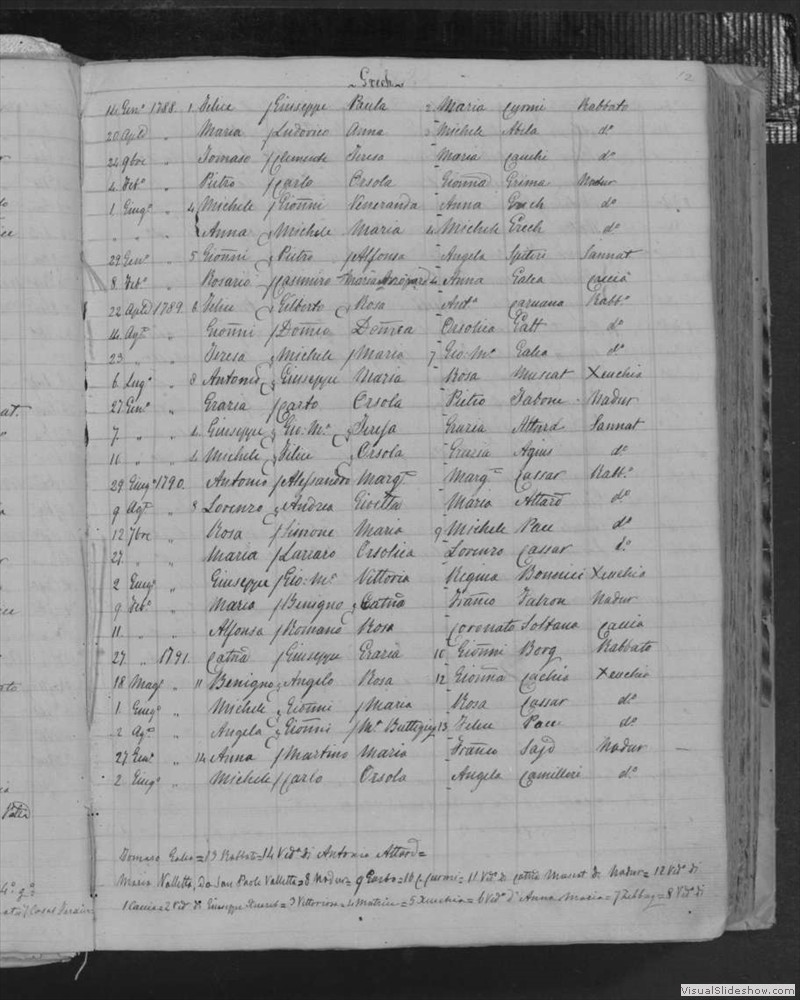 Grech
12
14 Gen° 1788. 1. Felice / Giuseppe Paula 2. Maria Cyomi Rabbato
20 Aple „ Maria / Ludovico Anna 3 Michele Abela d°
24 9bre „ Tomaso / Clemente Teresa Maria Cauchi d°
4. Feb° „ Pietro / Carlo Orsola Gionña Grima Nadur
1 Giug° „ 4 Michele / Gionñi Veneranda Anna Grech d°
„ „ „ Anna / Michele Maria 4 Michele Grech d°
29 Gen° „ 5 Gionñi / Pietro / Alfonsa Angela Spiteri Sannat
8 Feb° „ Rosario / Casimiro Maria Anna Galea Caccia
22 Aple 1789. 6 Felice / Gilberto Rosa Ant° Caruana Rabb°
14 Ag° „ Gionñi / Domco Domca Orsolia Gatt d°
23 „ „ Teresa / Michele / Maria 7 Gio: M° Galea d°
6 Lug° „ 8 Antonio / Giuseppe Maria Rosa Muscat Xeuchia
27 Gen° „ Grazia / Carlo Orsola Pietro Tabone Nadur
7 „ „ 4. Giuseppe / Gio: M° / Teresa Grazia Attard Sannat
10 „ „ 4 Michele / Felice / Orsola Grazia Agius d°
29 Giug° 1790. Antonio / Alessandro Marga Marga Cassar Rabb°
9 Ag° „ 8 Lorenzo / Andrea Maria Attard d°
12 7bre „ Rosa / Simone Maria 9 Michele Pace d°
27 „ „ Maria / Lazzaro Orsolia Lorenzo Cassar d°
2 Giug° „ Giuseppe / Gio: M° Vittoria Regina Bonnici Xeuchia
9 Feb° „ Maria / Benigno / Catña Franco Nadur
11 „ „ Alfonsa / Romano Rosa Coronato Soltana Caccia
27 „ 1791. Catña / Giuseppe Grazia 10 Gionñi Borg Rabbato
18 Mag° „ 11 Benigno / Angelo Rosa 12 Gionña Cachia Xeuchia
1 Giug° „ Michele / Gionñi / Maria Rosa Cassar d°
2 Ag° „ Angela / Gionñi / M° Buttigieg 13 Felice Pace d°
27 Gen° „ 14 Anna / Martino Maria Franco Said Nadur
2 Giug° „ Michele / Carlo Orsola Angela Camilleri d°
Tomaso Galea = 13 Rabbato = 14 Ved° di Antonio Attard =
Maria Valletta, Da San Paolo Valletta = 8 Nadur = 9 Garbo = 10 = 11 Ved° di Catña Muscat di Nadur = 12 Ved° di
1 Caccia = 2 Ved° di Giuseppe = 3 Vittoriosa = 4 Matrice = 5 Xeuchia = 6 Ved° di Anna Maria = 7 Zebbug = 8 Ved° di
VisualSlideshow.com